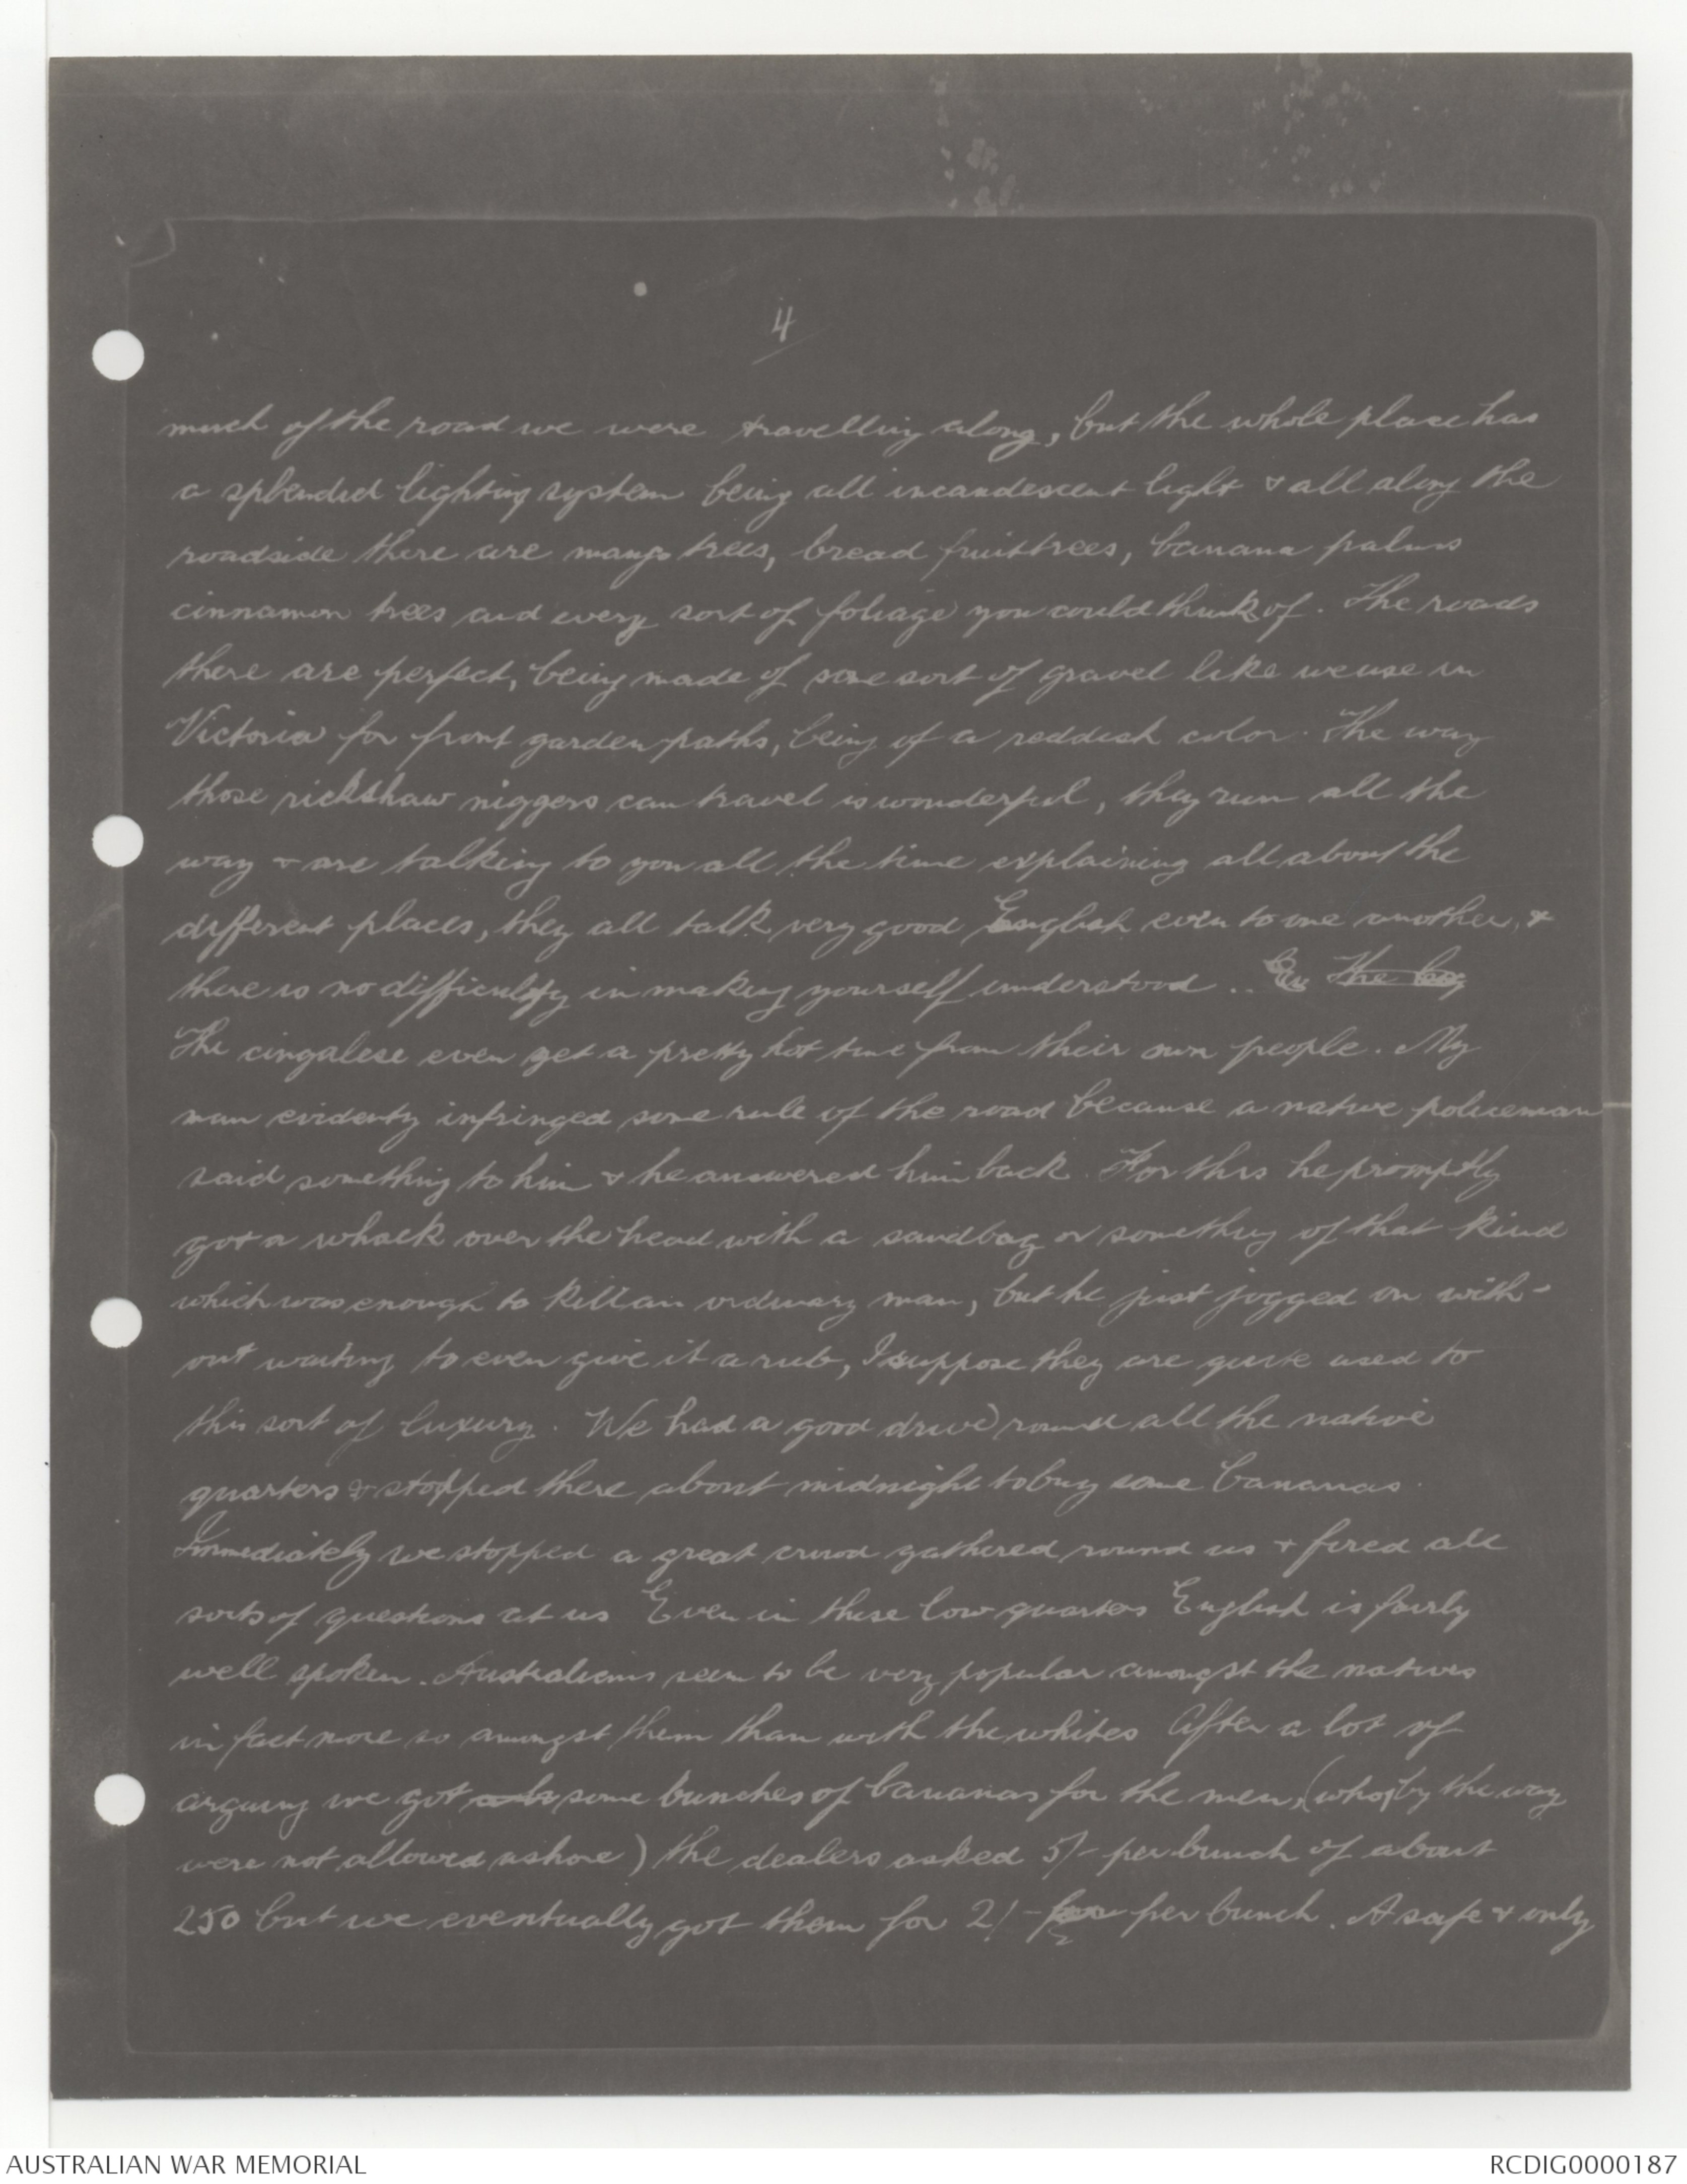 4
much of the road we were travelling along, but the whole place has
a splendid lighting system being all incandescent light & all along the
roadside there are mango trees, bread fruit trees, banana palms
cinnamon trees and every sort of foliage you could think of. The roads
there are perfect, being made of some sort of gravel like we use in
Victoria for front garden paths, being of a reddish color. The way
those rickshaw niggers can travel is wonderful, they run all the
way & are talking to you all the time explaining all about the
different places, they all talk very good English even to one another, &
there is no difficulty in making yourself understood .. The
The cingalese even get a pretty hot time from their own people. My
man evidenty infringed some rule of the road because a native policeman
said something to him & he answered him back. For this he promptly
got a whack over the head with a sandbag or something of that kind
which was enough to kill an ordinary man, but he just jogged on with-
out waiting to even give it a rub, I suppose they are quite used to
this sort of luxury. We had a good drive round all the native
quarters & stopped there about midnight to buy some bananas.
Immediately we stopped a great crowd gathered round us & fired all
sorts of questions at us Even in these low quarters English is fairly
well spoken. Australians seem to be very popular amongst the natives
in fact more so amongst them than with the whites After a lot of
arguing we got some bunches of bananas for the men, (who, by the way
were not allowed ashore) the dealers asked 5/- per bunch of about
250 but we eventually got them for 2/- per bunch. A safe & only
AUSTRALIAN WAR MEMORIAL
RCDIG0000187